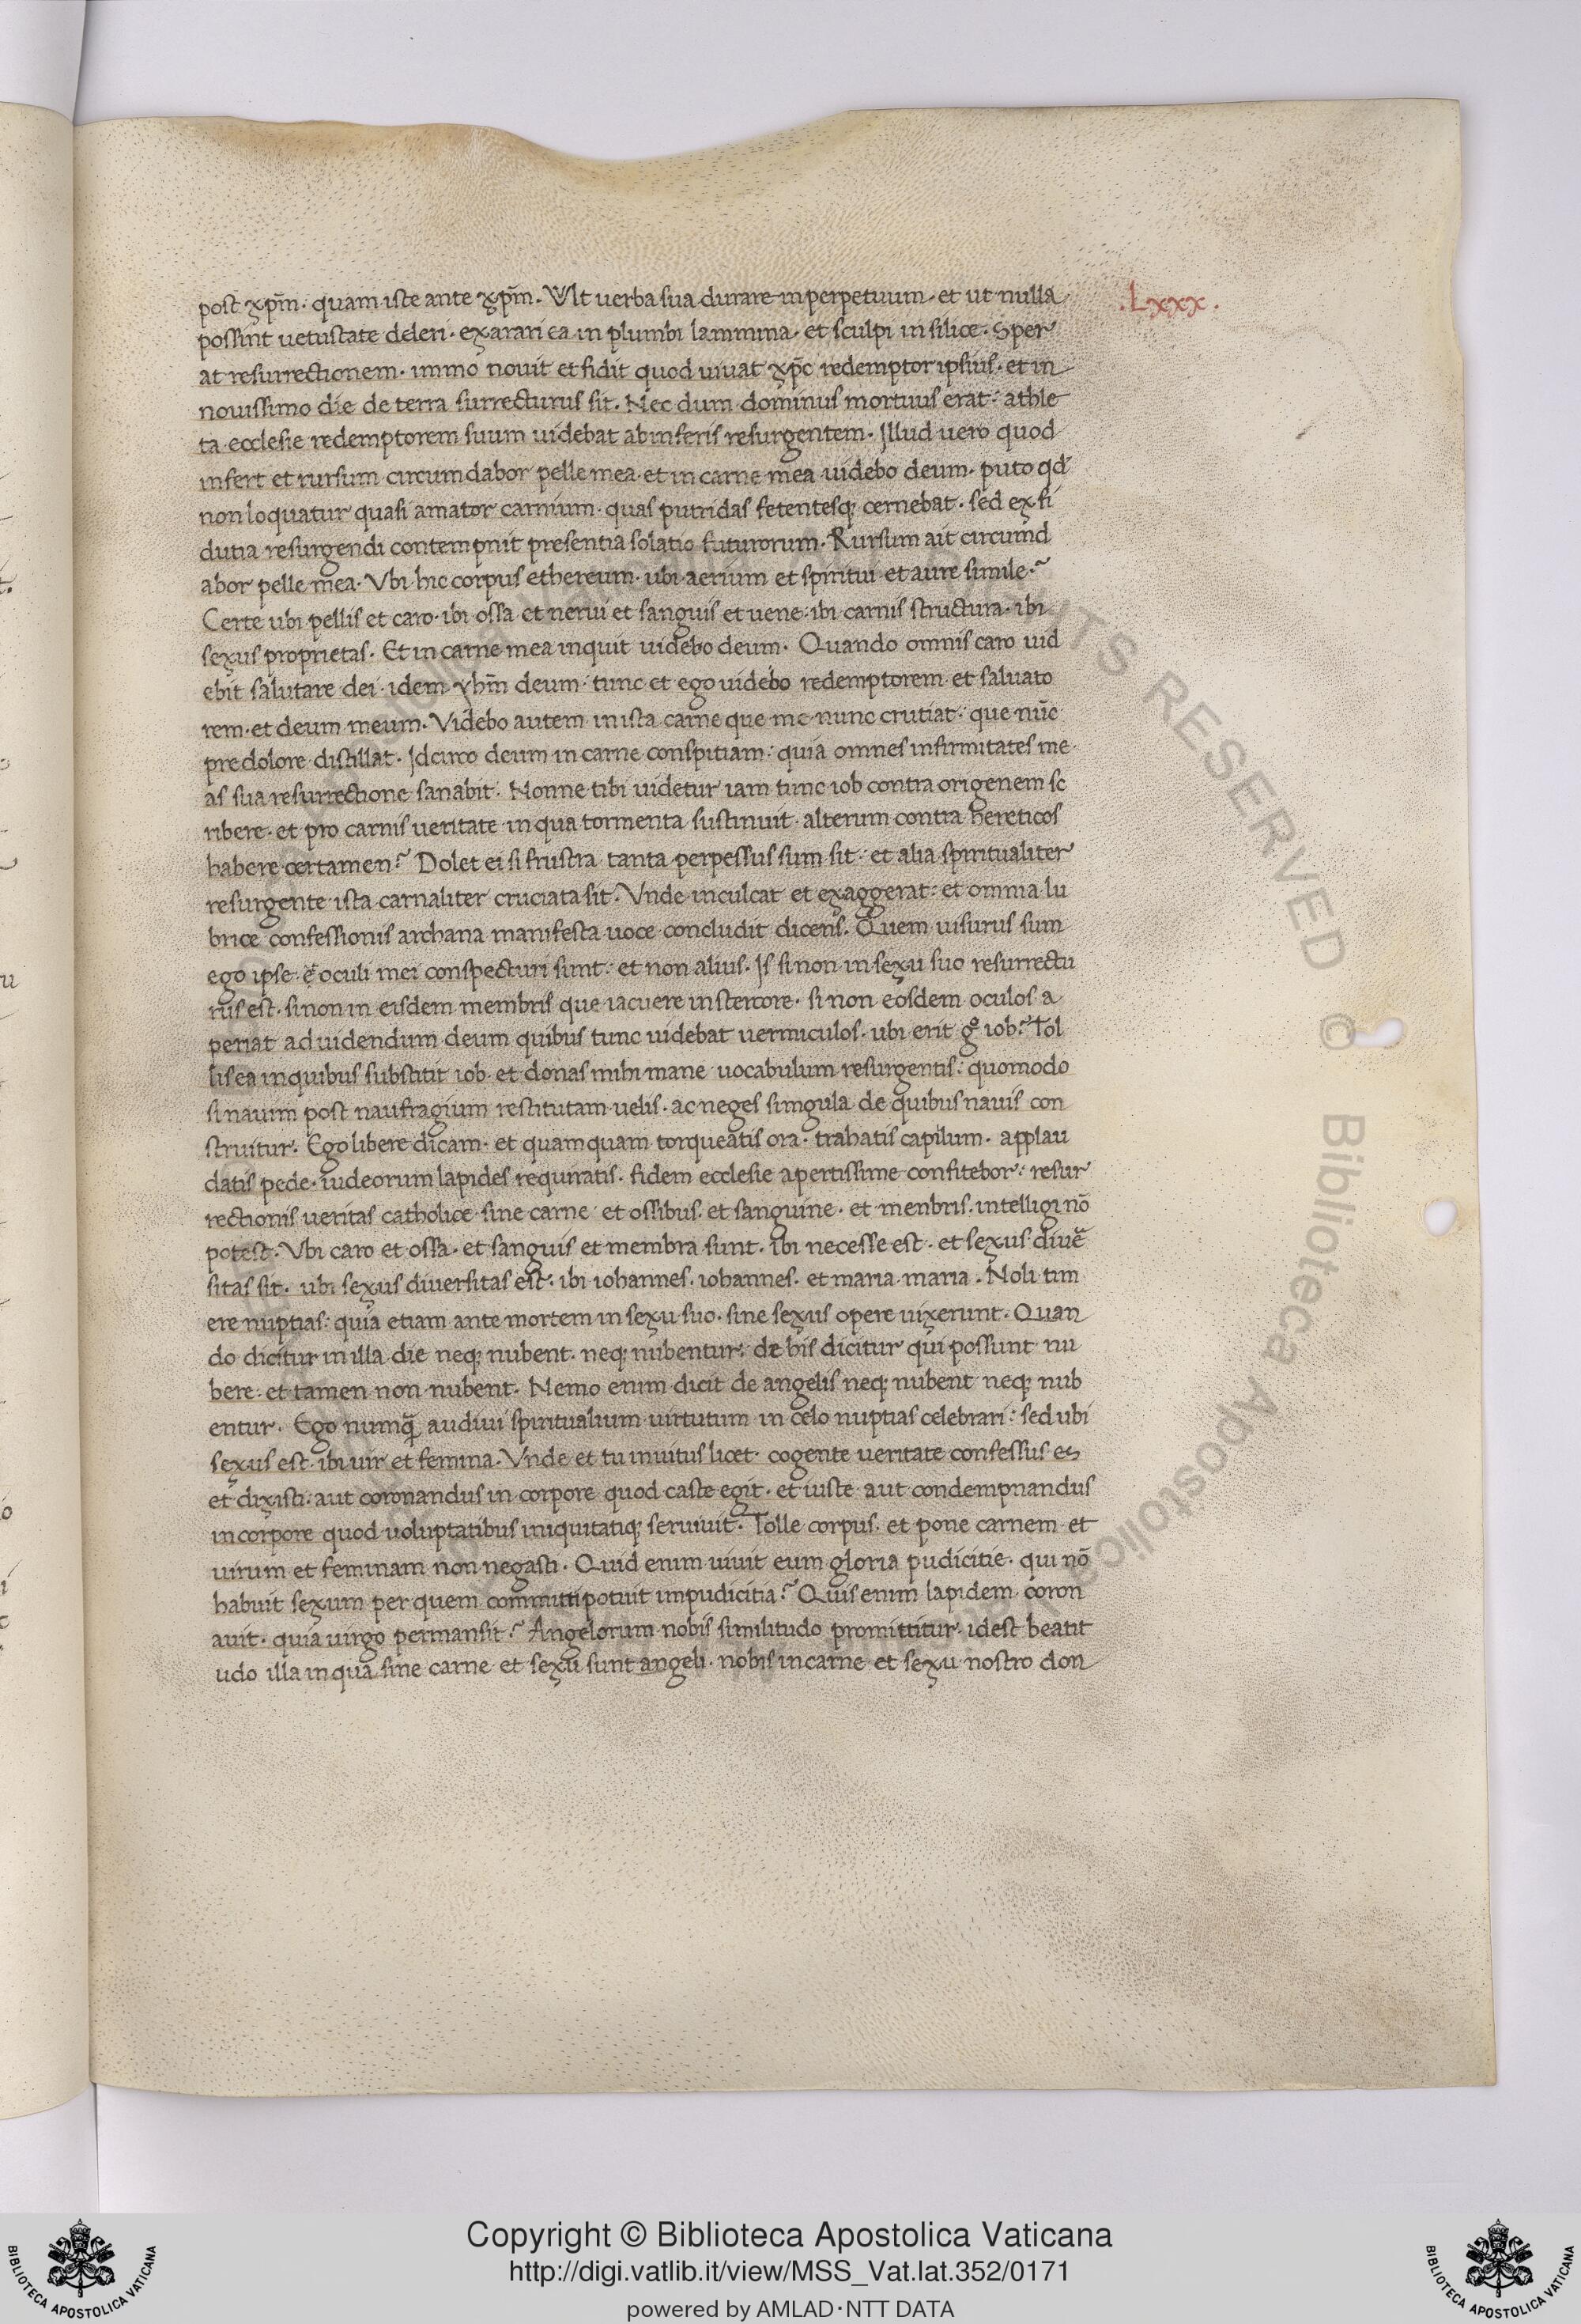 post xp̄m · quam iste ante xp̄m . Vult uerba sua durare in perpetuum · et ut nulla
.Lxxx.
possint uetustate deleri · exarari ea in plumbi lammina · et sculpi in silice . Sper
at resurrectionem · immo nouit et fidit quod uiuat xp̄c redemptor ipsius · et in
nouissimo die de terra surrecturus sit . Nec dum dominus mortuus erat : athle
ta ecclesie redemptorem suum uidebat ab inferis resurgentem . Illud uero quod
infert et rursum circumdabor pelle mea · et in carne mea uidebo deum · puto qd̄
non loquatur quasi amator carnium · quas putridas fetentesq; cernebat · sed ex fi
dutia resurgendi contempnit presentia solatio futurorum . Rursum ait circumd
abor pelle mea · Vbi hic corpus ethereum · ubi aerium et spiritui et aure simile ?
Certe ubi pellis et caro · ibi ossa et nerui et sanguis et uene : ibi carnis structura · ibi
sexus proprietas . Et in carne mea inquit uidebo deum . Quando omnis caro uid
ebit salutare dei · idem yhm̄ deum : tunc et ego uidebo redemptorem et saluato
rem · et deum meum . Videbo autem in ista carne que me nunc crutiat : que nūc
pre dolore distillat . Idcirco deum in carne conspitiam : quia omnes infirmitates me
as sua resurrectione sanabit . Nonne tibi uidetur iam tunc iob contra origenem sc
ribere · et pro carnis ueritate in qua tormenta sustinuit · alterum contra hereticos
habere certamen ? Dolet ei si frustra tanta perpessus sum sit : et alia spiritualiter
resurgente ista carnaliter cruciata sit . Vnde inculcat et exaggerat : et omnia lu
brice confessionis archana manifesta uoce concludit dicens . Quem uisurus sum
ego ipse · & oculi mei conspecturi sunt : et non alius . Is si non in sexu suo resurrectu
rus est · si non in eisdem membris que iacuere in stercore · si non eosdem oculos a
periat ad uidendum deum quibus tunc uidebat uermiculos · ubi erit gº iob ? Tol
lis ea in quibus substitit iob · et donas mihi inane uocabulum resurgentis : quomodo
si nauim post naufragium restitutam uelis · ac neges simgula de quibus nauis con
struitur . Ego libere dicam · et quamquam torqueatis ora · trahatis capilum · applau
datis pede · iudeorum lapides requiratis · fidem ecclesie apertissime confitebor : resur
rectionis ueritas catholice sine carne et ossibus · et sanguine · et menbris · intelligi nō
potest . Vbi caro et ossa · et sanguis et membra sunt . ibi necesse est · et sexus diuē
sitas sit . ubi sexus diuersitas est : ibi iohannes · iohannes · et maria · maria . Noli tim
ere nuptias : quia etiam ante mortem in sexu suo · sine sexus opere uixerunt . Quan
do dicitur in illa die neq; nubent · neq; nubentur : de his dicitur qui possunt nu
bere · et tamen non nubent . Nemo enim dicit de angelis neq; nubent neq; nub
entur . Ego numq̄ audiui spiritualium uirtutum in celo nuptias celebrari : sed ubi
sexus est · ibi uir et femina . Vnde et tu inuitus licet · cogente ueritate confessus es
et dixisti : aut coronandus in corpore quod caste egit · et iuste aut condempnandus
in corpore quod uoluptatibus iniquitatiq; seruiuit . Tolle corpus · et pone carnem et
uirum et feminam non negasti . Quid enim uiuit eum gloria pudicitie · qui nō
habuit sexum per quem committi potuit impudicitia ? Quis enim lapidem coron
auit · quia uirgo permansit ? Angelorum nobis similitudo promittitur · idest beatit
udo illa in qua sine carne et sexu sunt angeli · nobis in carne et sexu nostro don
Copyright © Biblioteca Apostolica Vaticana
http://digi.vatlib.it/view/MSS_Vat.lat.352/0171
powered by AMLAD · NTT DATA